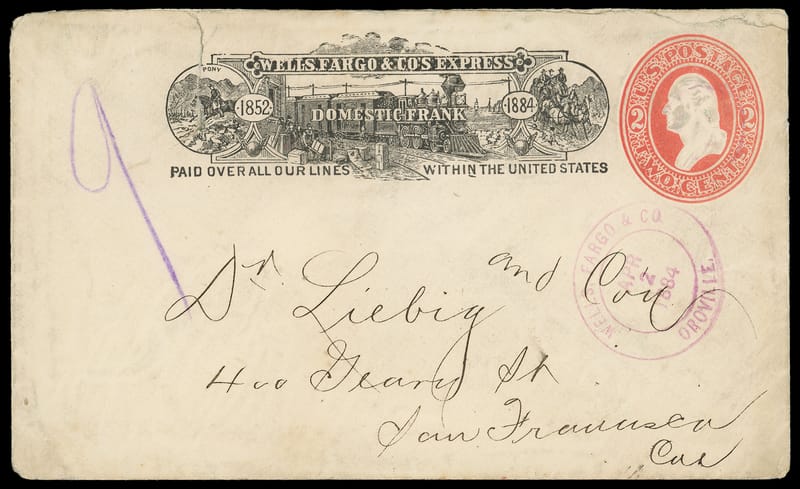 PONY
WELLS FARGO & CO'S EXPRESS
1852
DOMESTIC FRANK
1884
PAID OVER ALL OUR LINES WITHIN THE UNITED STATES
U.S. POSTAGE
2 2
TWO CENTS
WELLS FARGO & CO.
APR
2
1884
OROVILLE.
9
Dr. Liebig and Co
400 Geary St
San Francisco
Cal